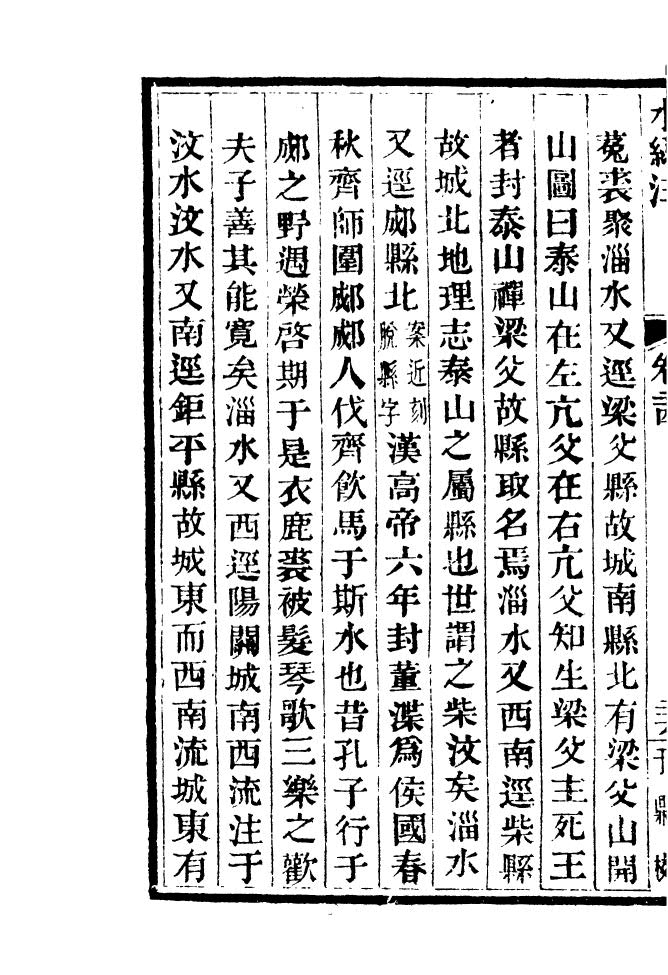 水經注 卷二十四
菟裘聚淄水又逕梁父縣故城南縣北有梁父山開
山圖曰泰山在左亢父在右亢父知生梁父主死王
者封泰山禪梁父故縣取名焉淄水又西南逕柴縣
故城北地理志泰山之屬縣也世謂之柴汶矣淄水
又逕郕縣北案近刻脫縣字漢高帝六年封董渫爲侯國春
秋齊師圍郕郕人伐齊飮馬于斯水也昔孔子行于
郕之野遇榮啓期于是衣鹿裘被髮琴歌三樂之歡
夫子善其能寬矣淄水又西逕陽關城南西流注于
汶水汶水又南逕鉅平縣故城東而西南流城東有